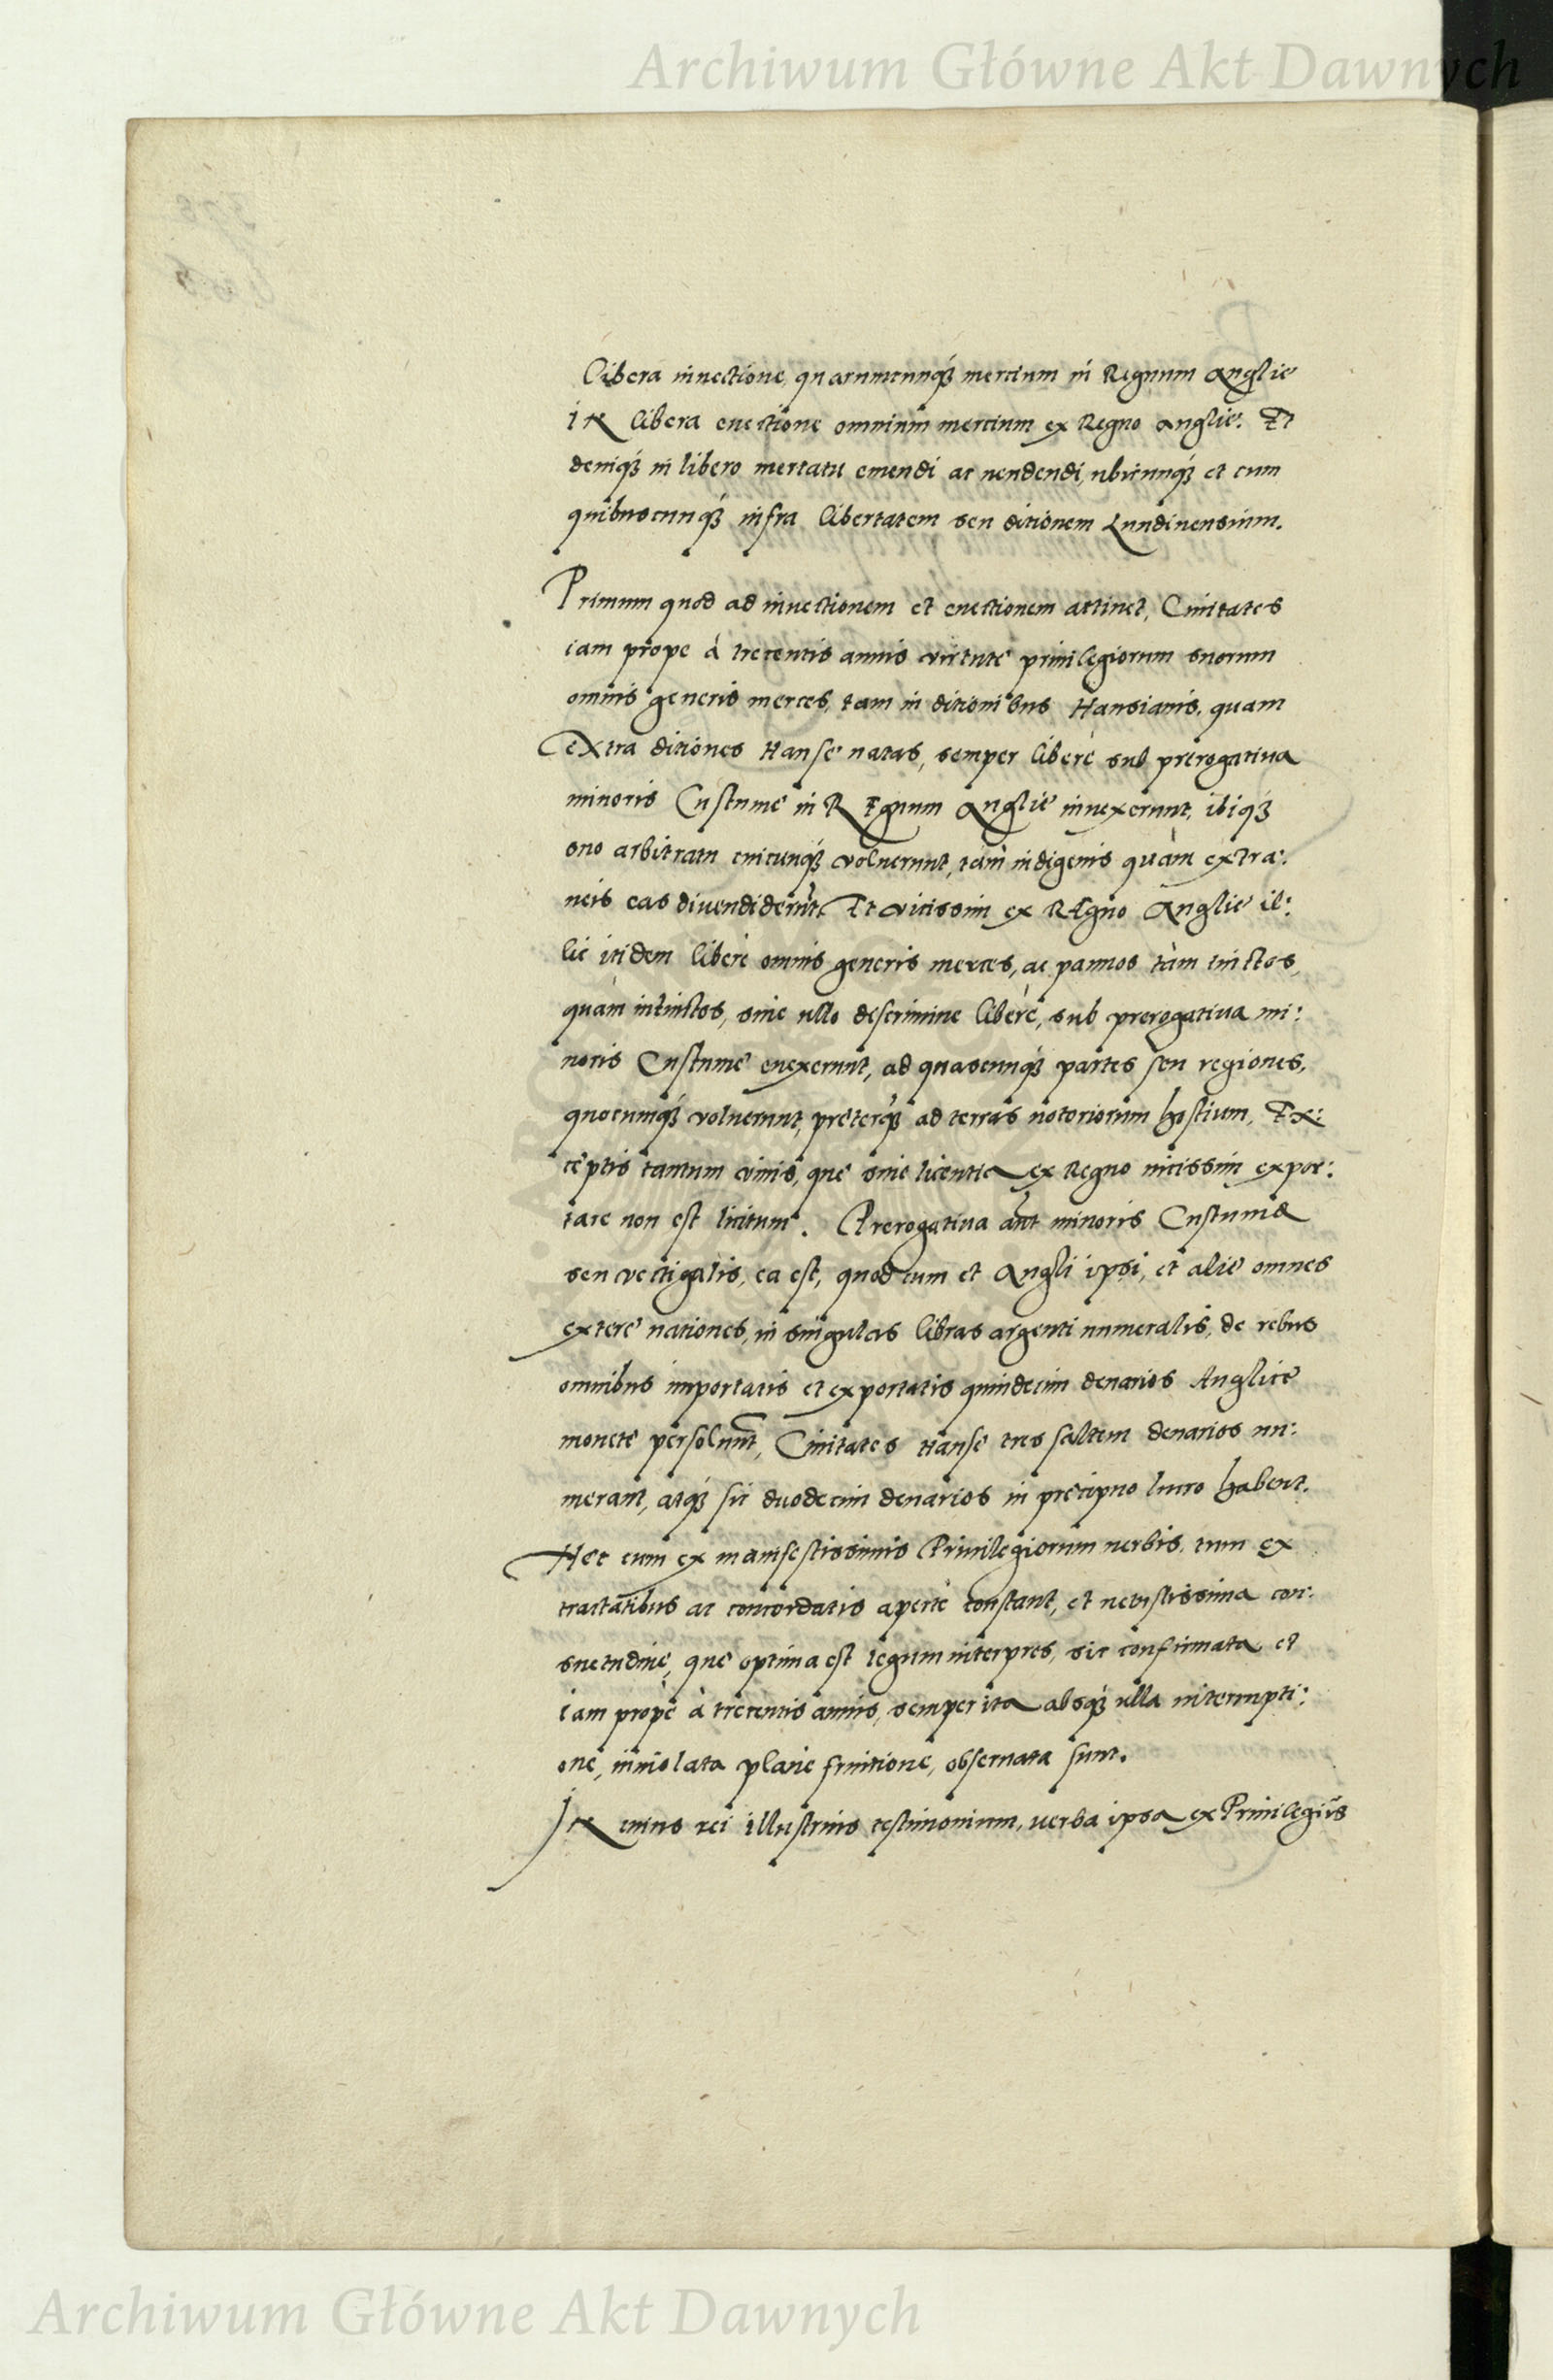 Archiwum Główne Akt Dawnych
Libera invectione, quarumcunqꝫ mercium in Regnum Anglię
Itē libera evectione omnium mercium ex Regno Anglię: Et
deniqꝫ in libero mercatu emendi ac vendendi, ubicunqꝫ et cum
quibuscunqꝫ infra libertatem seu ditionem Lundinensium.
Primum quod ad invectionem et evectionem attinet, Civitates
iam prope à trecentis annis virtute privilegiorum suorum
omnis generis merces, tam in ditionibus Hansianis, quam
extra ditiones Hansę natas, semper liberè sub prerogativa
minoris Custumę in Regnum Anglię invexerunt, ibiqꝫ
suo arbitratu cuicunqꝫ voluerunt, tàm indigenis quàm extra:
neis eas divendiderūt, Et vicissim ex Regno Anglię il:
lic itidem liberè omnis generis merces, ac pannos tàm tinctos,
quàm intinctos, sine ullo descrimine liberè, sub prerogativa mi:
noris Custumę evexerunt, ad quascunqꝫ partes seu regiones,
quocumqꝫ voluerunt, pręterqꝫ ad terras notoriorum hostium, Ex:
cęptis tantum vinis, quę sine licentia ex Regno vicissim expor:
tare non est licitum. Prerogativa aūt minoris Custumæ
seu vectigalis, ea est, quod cum et Angli ipsi, et alię omnes
exterę nationes, in singulas libras argenti numeralis, de rebus
omnibus importatis et exportatis quindecim denarios Anglicę
monetę persolvūt, Civitates Hansę tres saltem denarios nu:
merant, atqꝫ sic duodecim denarios in pręcipuo lucro habent.
Hęc cum ex manifestissimis Privilegiorum verbis, tum ex
tractatibus ac concordatis apertè constant, et vetustissima con:
suetudine, quę optima est legum interpres, sic confirmata et
iam propè à trecentis annis, semper ita absqꝫ ulla interrupti:
one, inviolata planè fruitione, observata sunt.
Itē cuius rei illustrius testimonium, verba ipsa ex Privilegijs
Archiwum Główne Akt Dawnych